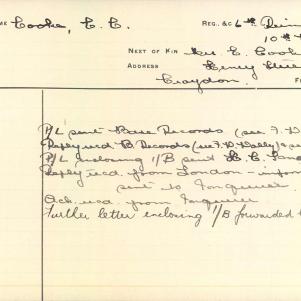 ME Cooke, C. C. REG. &C 6th Rein
10th
NEXT OF KIN Mrs. E. Cook
ADDRESS Henry Stree
Croydon.
P/L sent Base Records (see F. W
Reply recd B. Records (see F. W Wally)
P/L Inclosing 1/B sent H. C. Lond
Reply recd. from London - infor
sent to Enquirer.
Ack. recd. from Enquirer
Further letter enclosing 1/B forwarded t